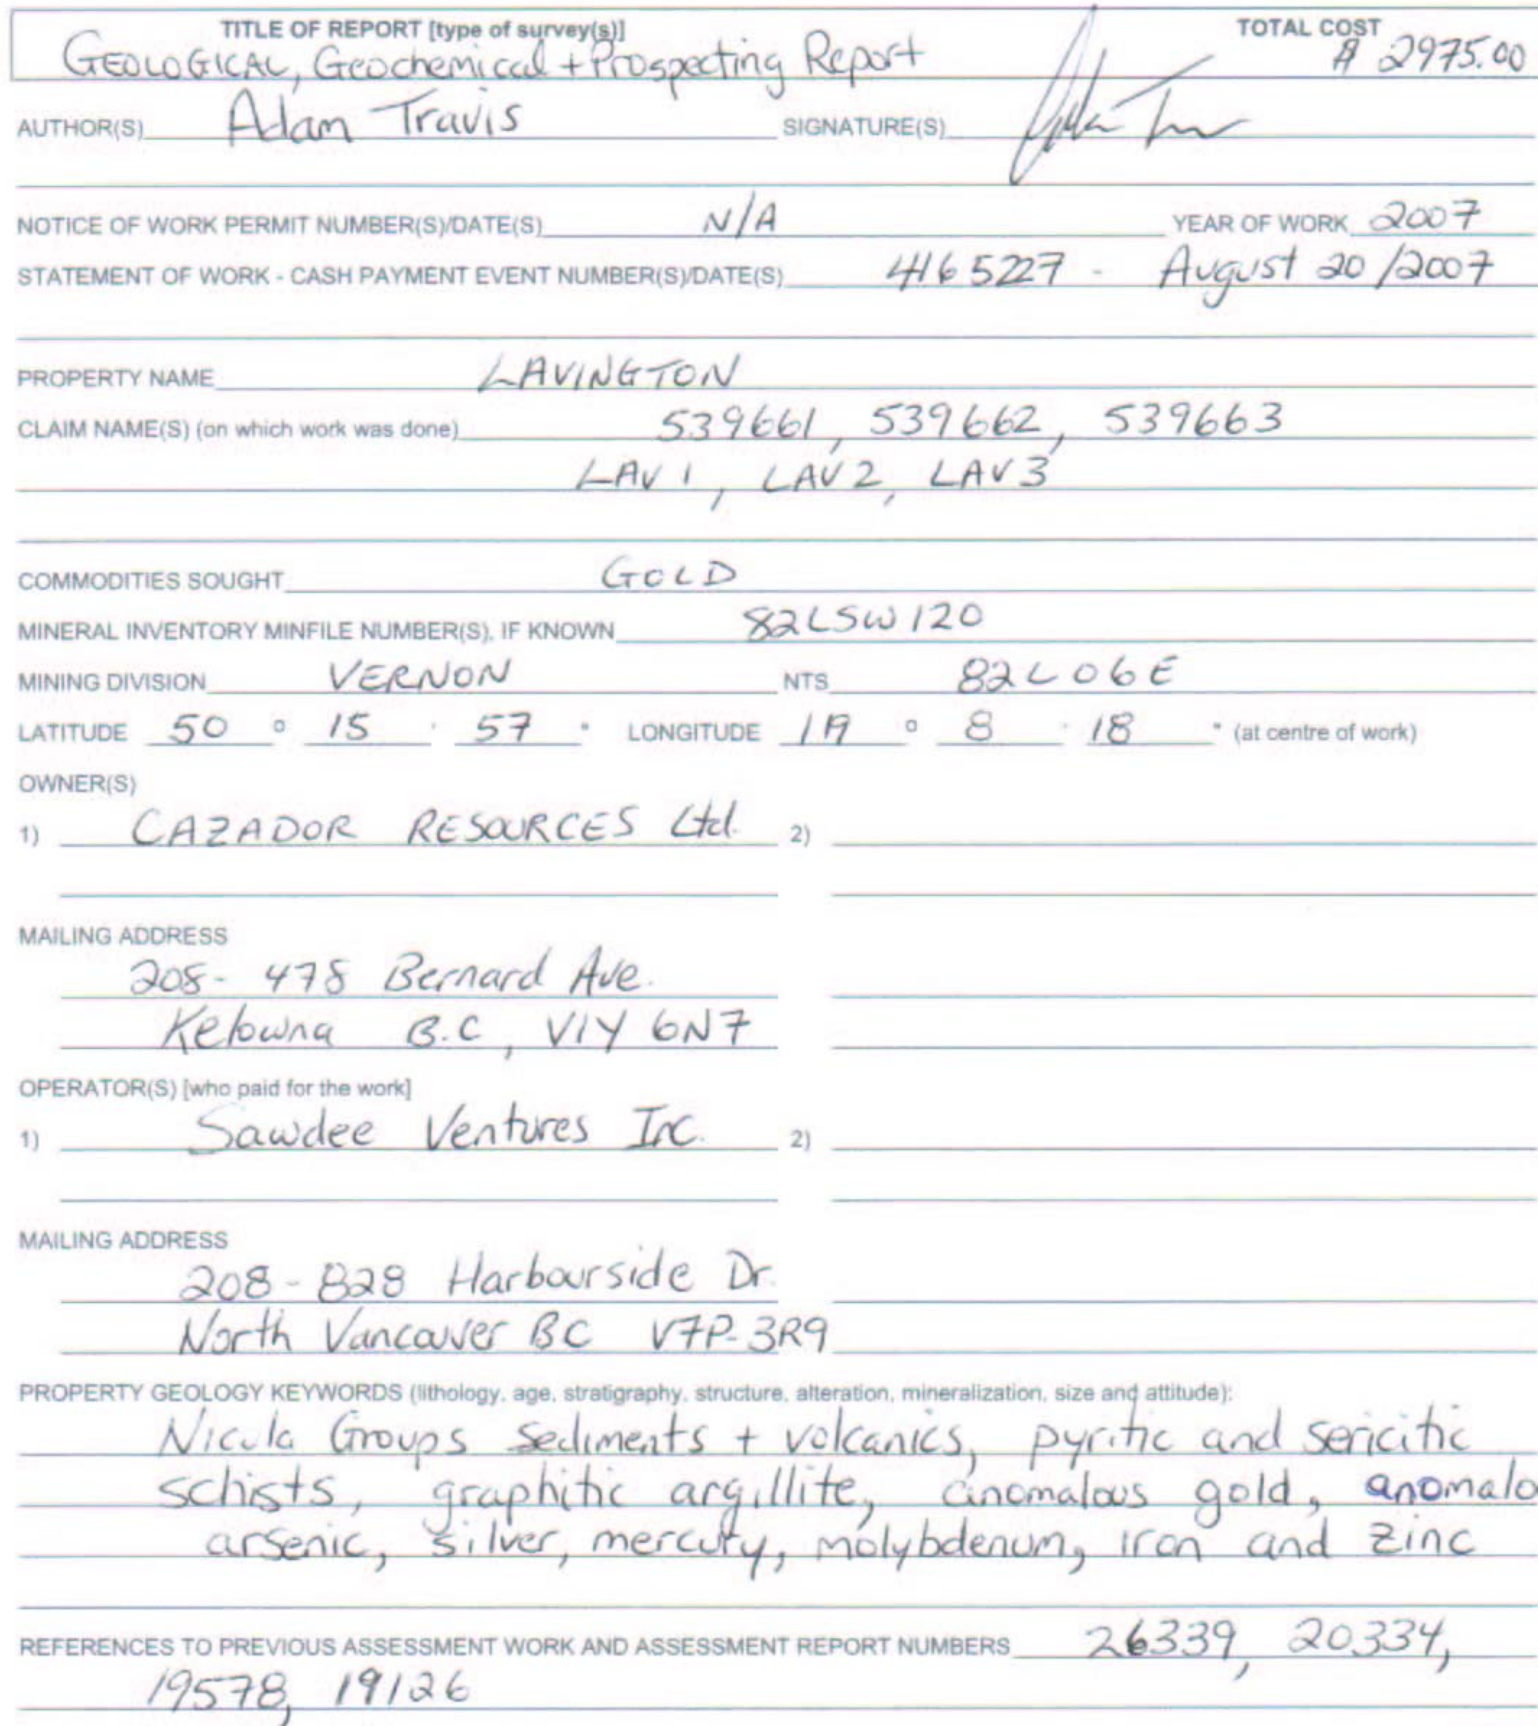 TITLE OF REPORT [type of survey(s)] TOTAL COST
GEOLOGICAL, Geochemical + Prospecting Report $ 2975.00
AUTHOR(S) Adam Travis SIGNATURE(S)
NOTICE OF WORK PERMIT NUMBER(S)/DATE(S) N/A YEAR OF WORK 2007
STATEMENT OF WORK - CASH PAYMENT EVENT NUMBER(S)/DATE(S) 4165227 - August 20/2007
PROPERTY NAME LAVINGTON
CLAIM NAME(S) (on which work was done) 539661, 539662, 539663
LAV 1, LAV 2, LAV 3
COMMODITIES SOUGHT GOLD
MINERAL INVENTORY MINFILE NUMBER(S), IF KNOWN 82LSW120
MINING DIVISION VERNON NTS 82L06E
LATITUDE 50 ° 15 ' 57 " LONGITUDE 119 ° 8 ' 18 " (at centre of work)
OWNER(S)
1) CAZADOR RESOURCES Ltd. 2)
MAILING ADDRESS
208- 478 Bernard Ave.
Kelowna B.C, V1Y 6N7
OPERATOR(S) [who paid for the work]
1) Sawdee Ventures Inc. 2)
MAILING ADDRESS
208-828 Harbourside Dr.
North Vancouver BC V7P-3R9
PROPERTY GEOLOGY KEYWORDS (lithology, age, stratigraphy, structure, alteration, mineralization, size and attitude):
Nicola Groups Sediments + volcanics, pyritic and sericitic
schists, graphitic argillite, anomalous gold, anomalo
arsenic, silver, mercury, molybdenum, iron and zinc
REFERENCES TO PREVIOUS ASSESSMENT WORK AND ASSESSMENT REPORT NUMBERS 26339, 20334,
19578, 19126